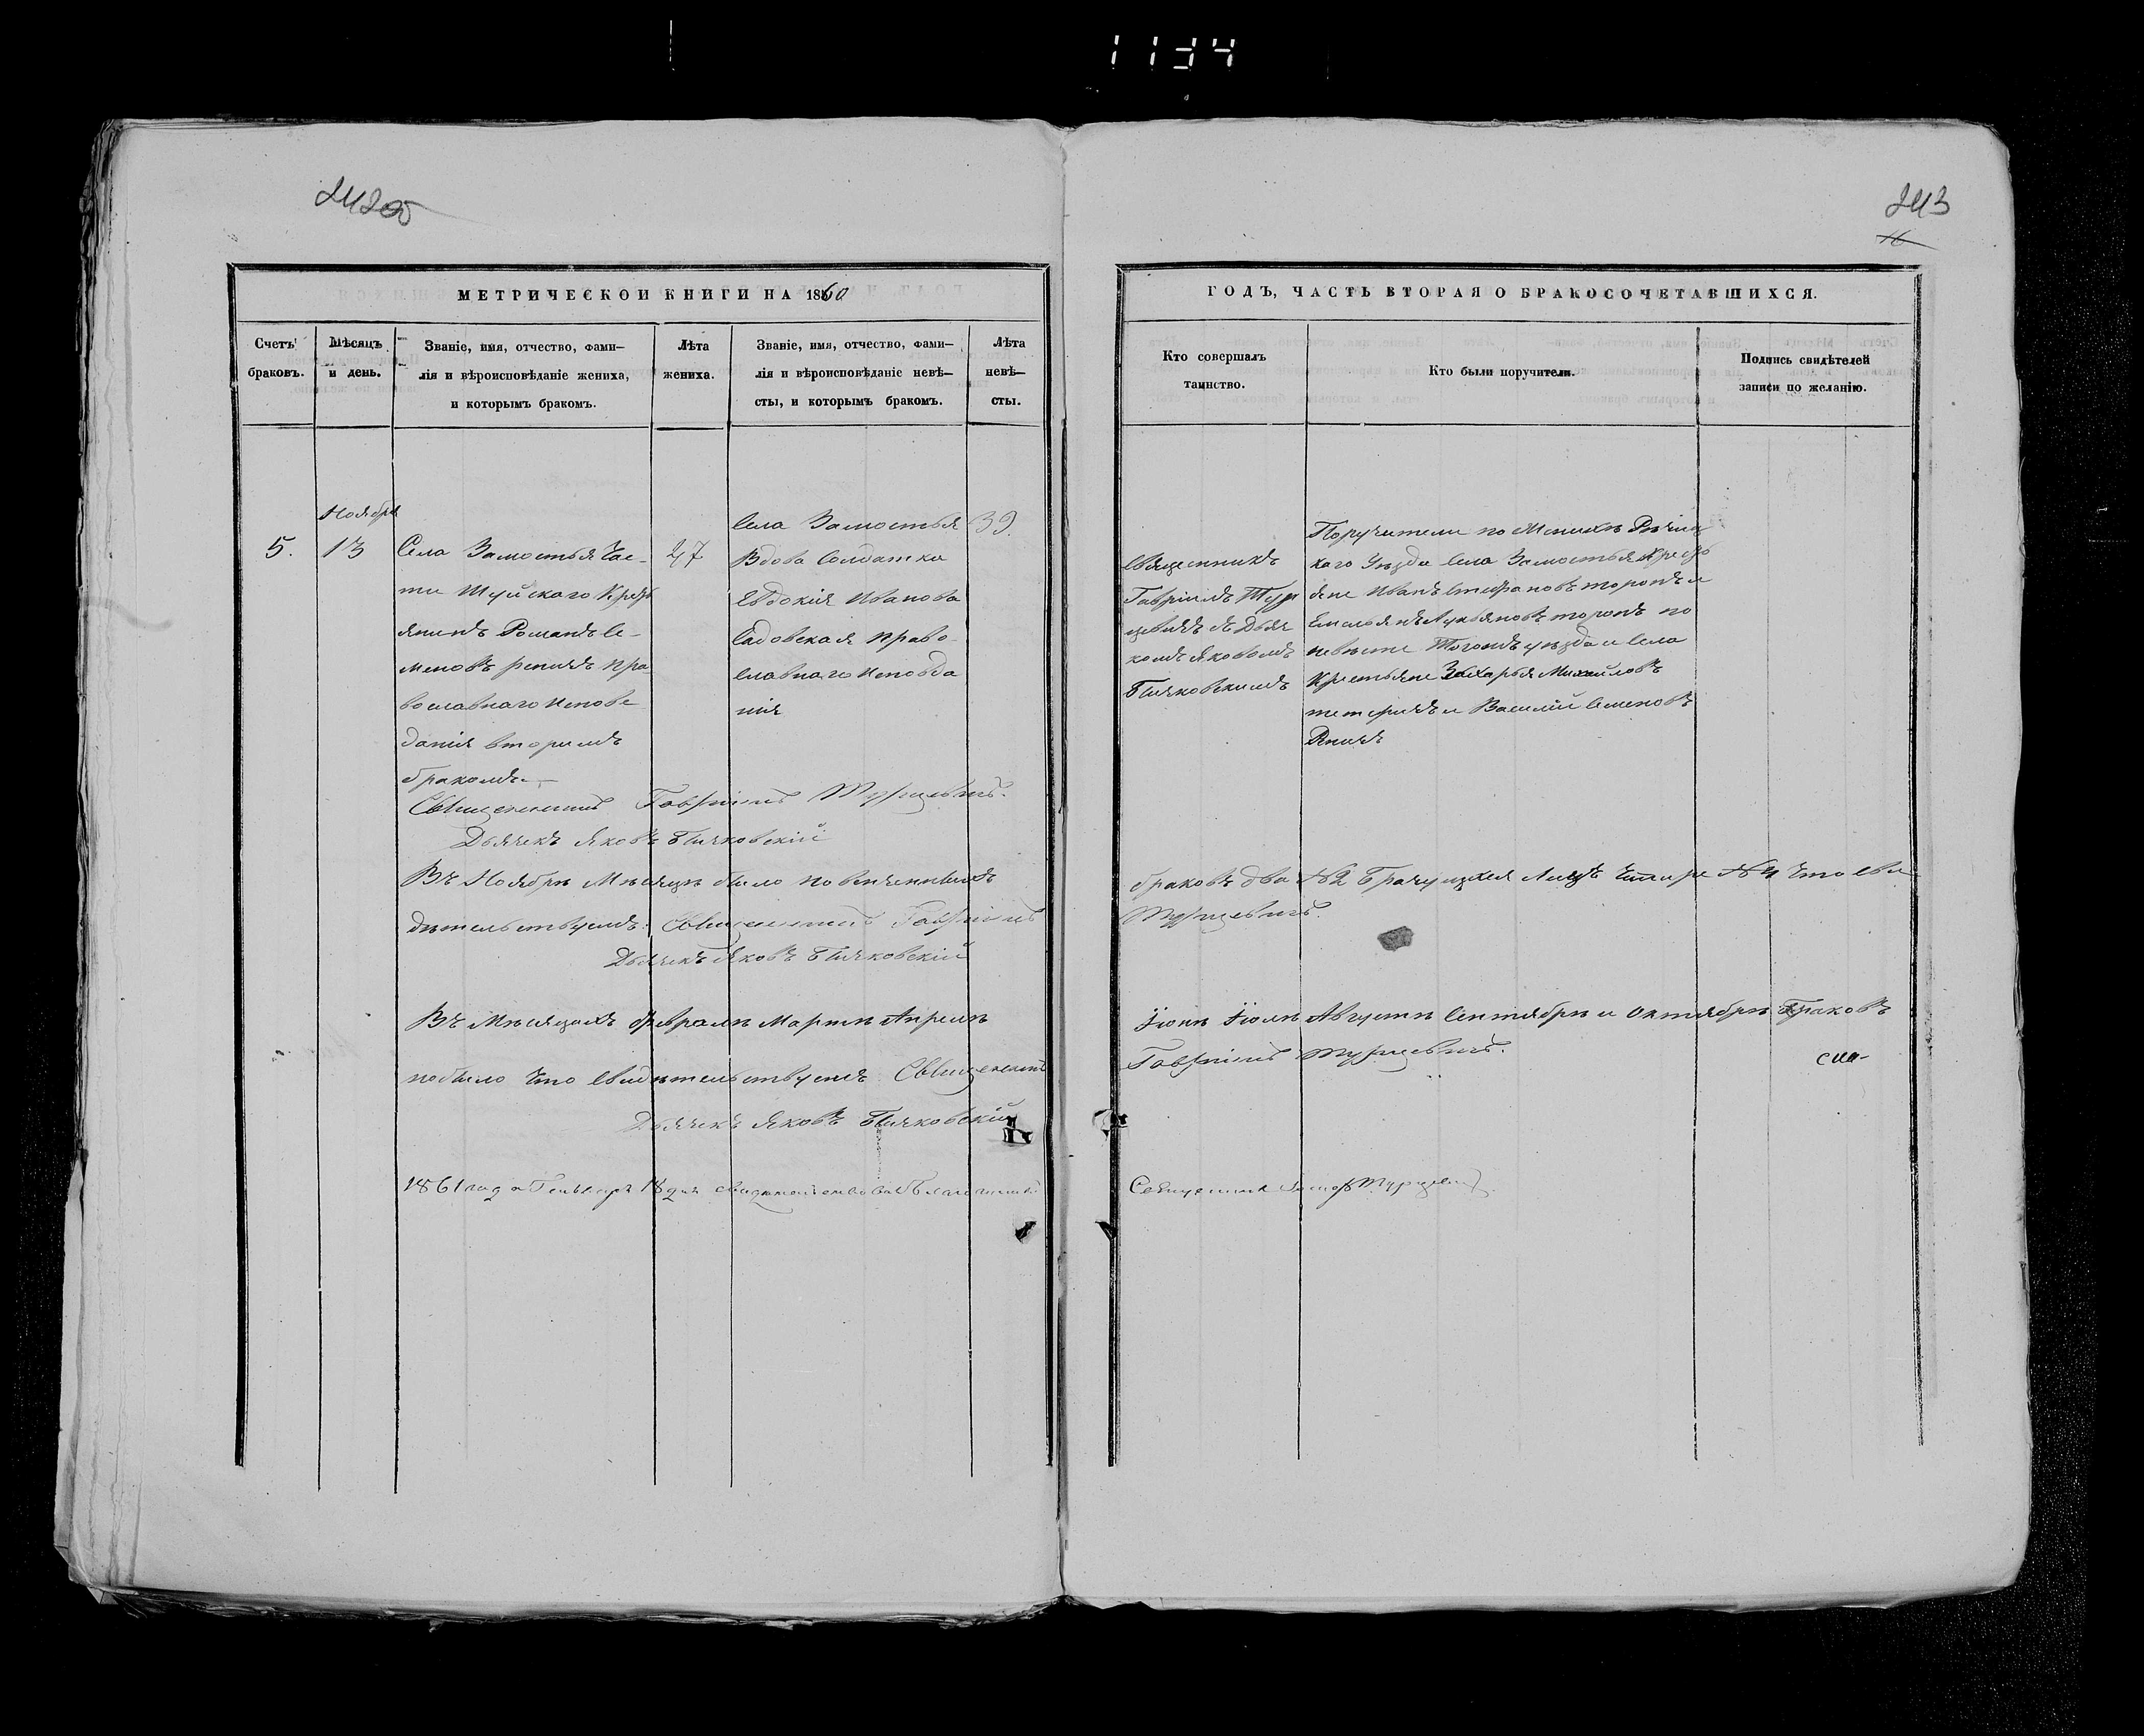 1134
243
МЕТРИЧЕСКОЙ КНИГИ НА 1860
Счетъ браковъ.
Мѣсяцъ и день.
Званіе, имя, отчество, фами—
лія и вѣроисповѣданіе жениха,
и которымъ бракомъ.
Лѣта
жениха.
Званіе, имя, отчество, фами—
лія и вѣроисповѣданіе невѣ—
сты, и которымъ бракомъ.
Лѣта
невѣ—
сты.
Ноября
5.
13
Села Замостья Час-
ти Шуйскаго Кресть
янинъ Романъ Се-
меновъ Репичъ пра
вославнаго Испове
данія вторимъ
бракомъ.
47
Села Замостья
Вдова Солдатка
Евдокія Иванова
Садовская право
славнаго Исповѣда
нія
39.
Священникъ Гавріилъ Турцевичъ.
Дьячекъ Яковъ Пичковскій
Въ Ноябрѣ Мѣсяцѣ было повѣнченныхъ
дѣтельствуемъ: Священникъ Гавріилъ
Дьячекъ Яковъ Пичковскій
Въ Мѣсяцахъ Февралѣ Мартѣ Апрелѣ
небыло Что Свидѣтельствуемъ Священникъ
Дьячекъ Яковъ Пичковскій
1861 года Генваря 18 дня свидѣтельствовалъ Благочинный
ГОДЪ, ЧАСТЬ ВТОРАЯ О БРАКОСОЧЕТАВШИХСЯ.
Кто совершалъ
таинство.
Кто были поручители.
Подпись свидѣтелей
записи по желанію.
Священникъ
Гавріилъ Тур
цевичъ съ Дьяч
комъ Яковомъ
Пичковскимъ
Поручители по Женихѣ Рѣчиц
каго Уѣзда Села Замостья Кресть
яне Иванъ Стефановъ и
Емельянъ Лукьяновъ по
невѣсте Тогожъ уѣзда и Села
Крестьяне Захарья Михайловъ
и Василій Семеновъ
Репичъ
браковъ два №2 Брачущихся Лицъ Четыре №4 Что Сви
Турцевичъ.
Іюнѣ Іюлѣ Августѣ Сентябрѣ и Октябрѣ Браковъ
Гавріилъ Турцевичъ.
Священникъ Турцевичъ